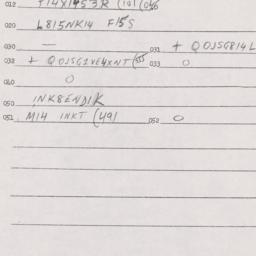 012 F14X1453R (101 (046
020 L815NK14 F15S
030 — 031 + Q0J5G814L
032 + Q0J5G2VE4XNT (55 033 0
040 0
050 INK8END1K
051 M14 INKT (491 052 0